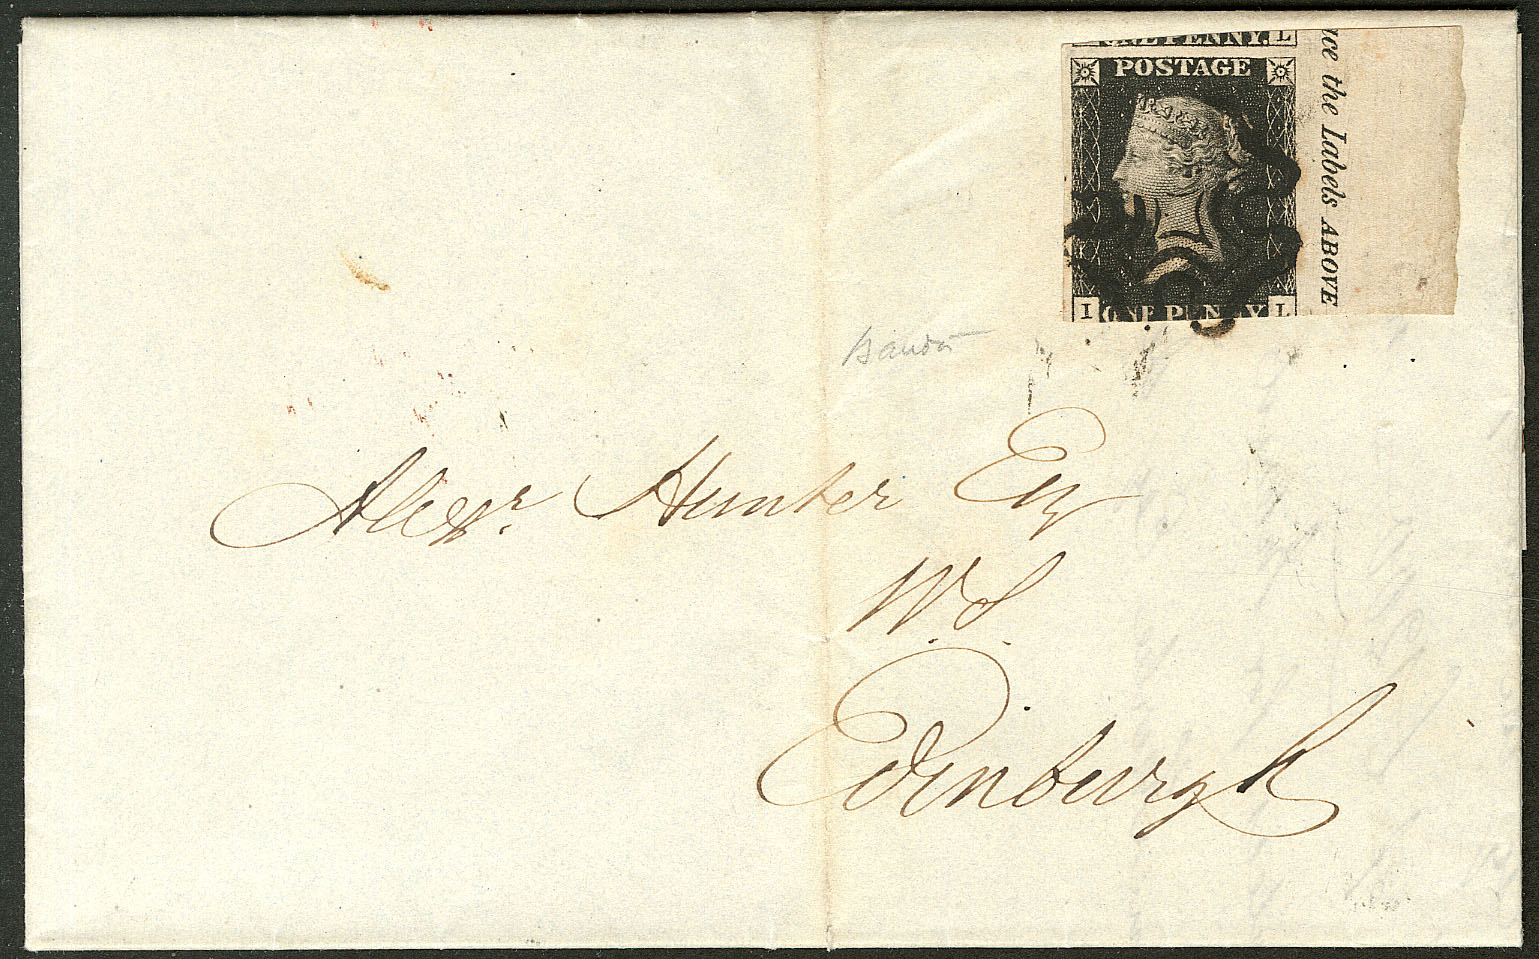 ONE PENNY. L
POSTAGE
I ONE PENNY L
ce the Labels ABOVE
Alexr. Hunter Esq
W.S.
Edinburgh